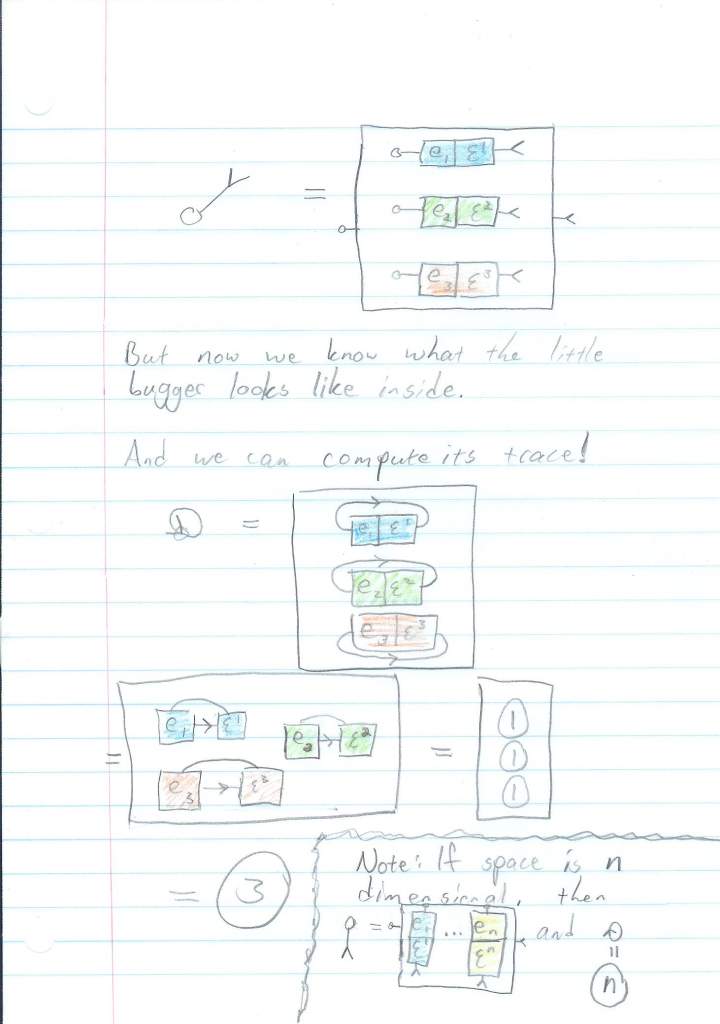 e₁ ε¹
=
e₂ ε²
e₃ ε³
But now we know what the little
bugger looks like inside.
And we can compute its trace!
=
e₁ ε¹
e₂ ε²
e₃ ε³
=
e₁ ε¹
e₂ ε²
e₃ ε³
=
1
1
1
= 3
Note: If space is n
dimensional, then
= e₁ ... eₙ and
ε¹ εⁿ
=
n